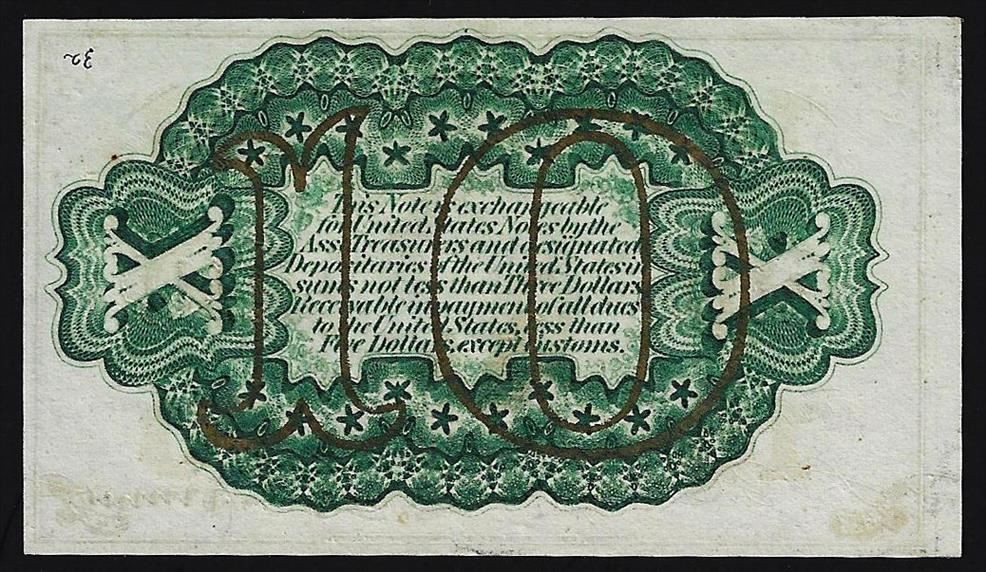 32
10
X X
This Note is exchangeable
for United States Notes by the
Asst. Treasurers and designated
Depositaries of the United States in
sums not less than Three Dollars.
Receivable in payment of all dues
to the United States, less than
Five Dollars, except Customs.